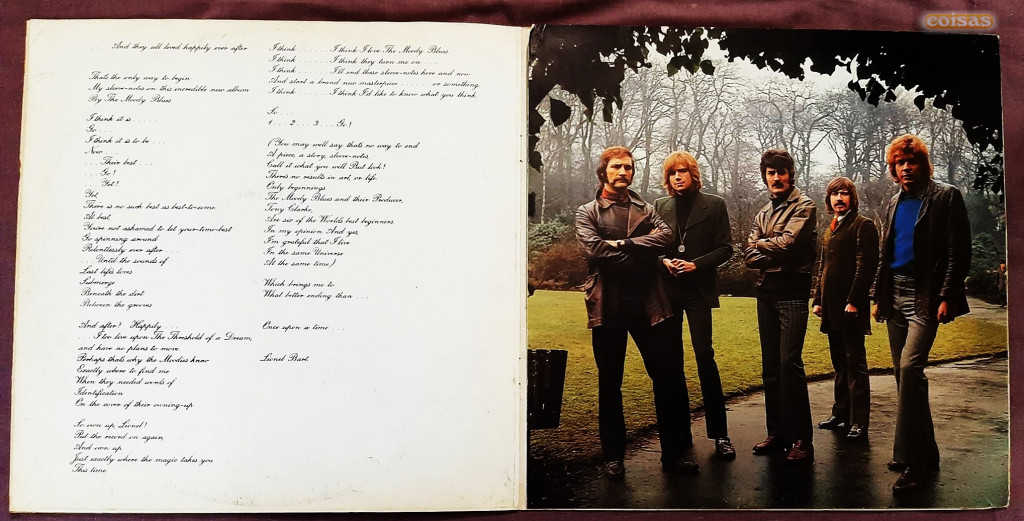 ... And they all lived happily ever after
Thats the only way to begin
My sleeve-notes on this incredible new album
By The Moody Blues
I think it is ....
Go ....
I think it is to be ...
Now ...
... Their best ...
Go!
Yet!
Yet,
There is no such best as best-to-come.
At best,
You're not ashamed to let your-time-best
Go spinning around
Relentlessly ever after ...
... Until the sounds of
Last life's loves
Submerge
Beneath the dirt
Between the grooves.
And after? Happily ...
... I too live upon The Threshold of a Dream,
and have no plans to move.
Perhaps thats why the Moodies knew
Exactly where to find me
When they needed words of
Identification
On the cover of their owning-up.
So own up, Lionel!
Put the record on again,
And own up
Just exactly where the magic takes you
This time.
I think ...... I think I love The Moody Blues.
I think ...... I think they turn me on ...
I think ...... I'll end these sleeve-notes here and now
And start a brand new masterpiece ... or something.
I think ...... I think I'd like to know what you think.
So ...
1 ... 2 ... 3 ... Go!
(You may well say thats no way to end
A piece, a story, sleeve-notes,
Call it what you will. But look!
There's no results in art or life.
Only beginnings.
The Moody Blues and their Producer,
Tony Clarke,
Are six of the Worlds best beginners.
In my opinion. And yes,
I'm grateful that I live
In the same Universe
At the same time.)
Which brings me to
What better ending than ...
Once upon a time ...
Lionel Bart.
coisas